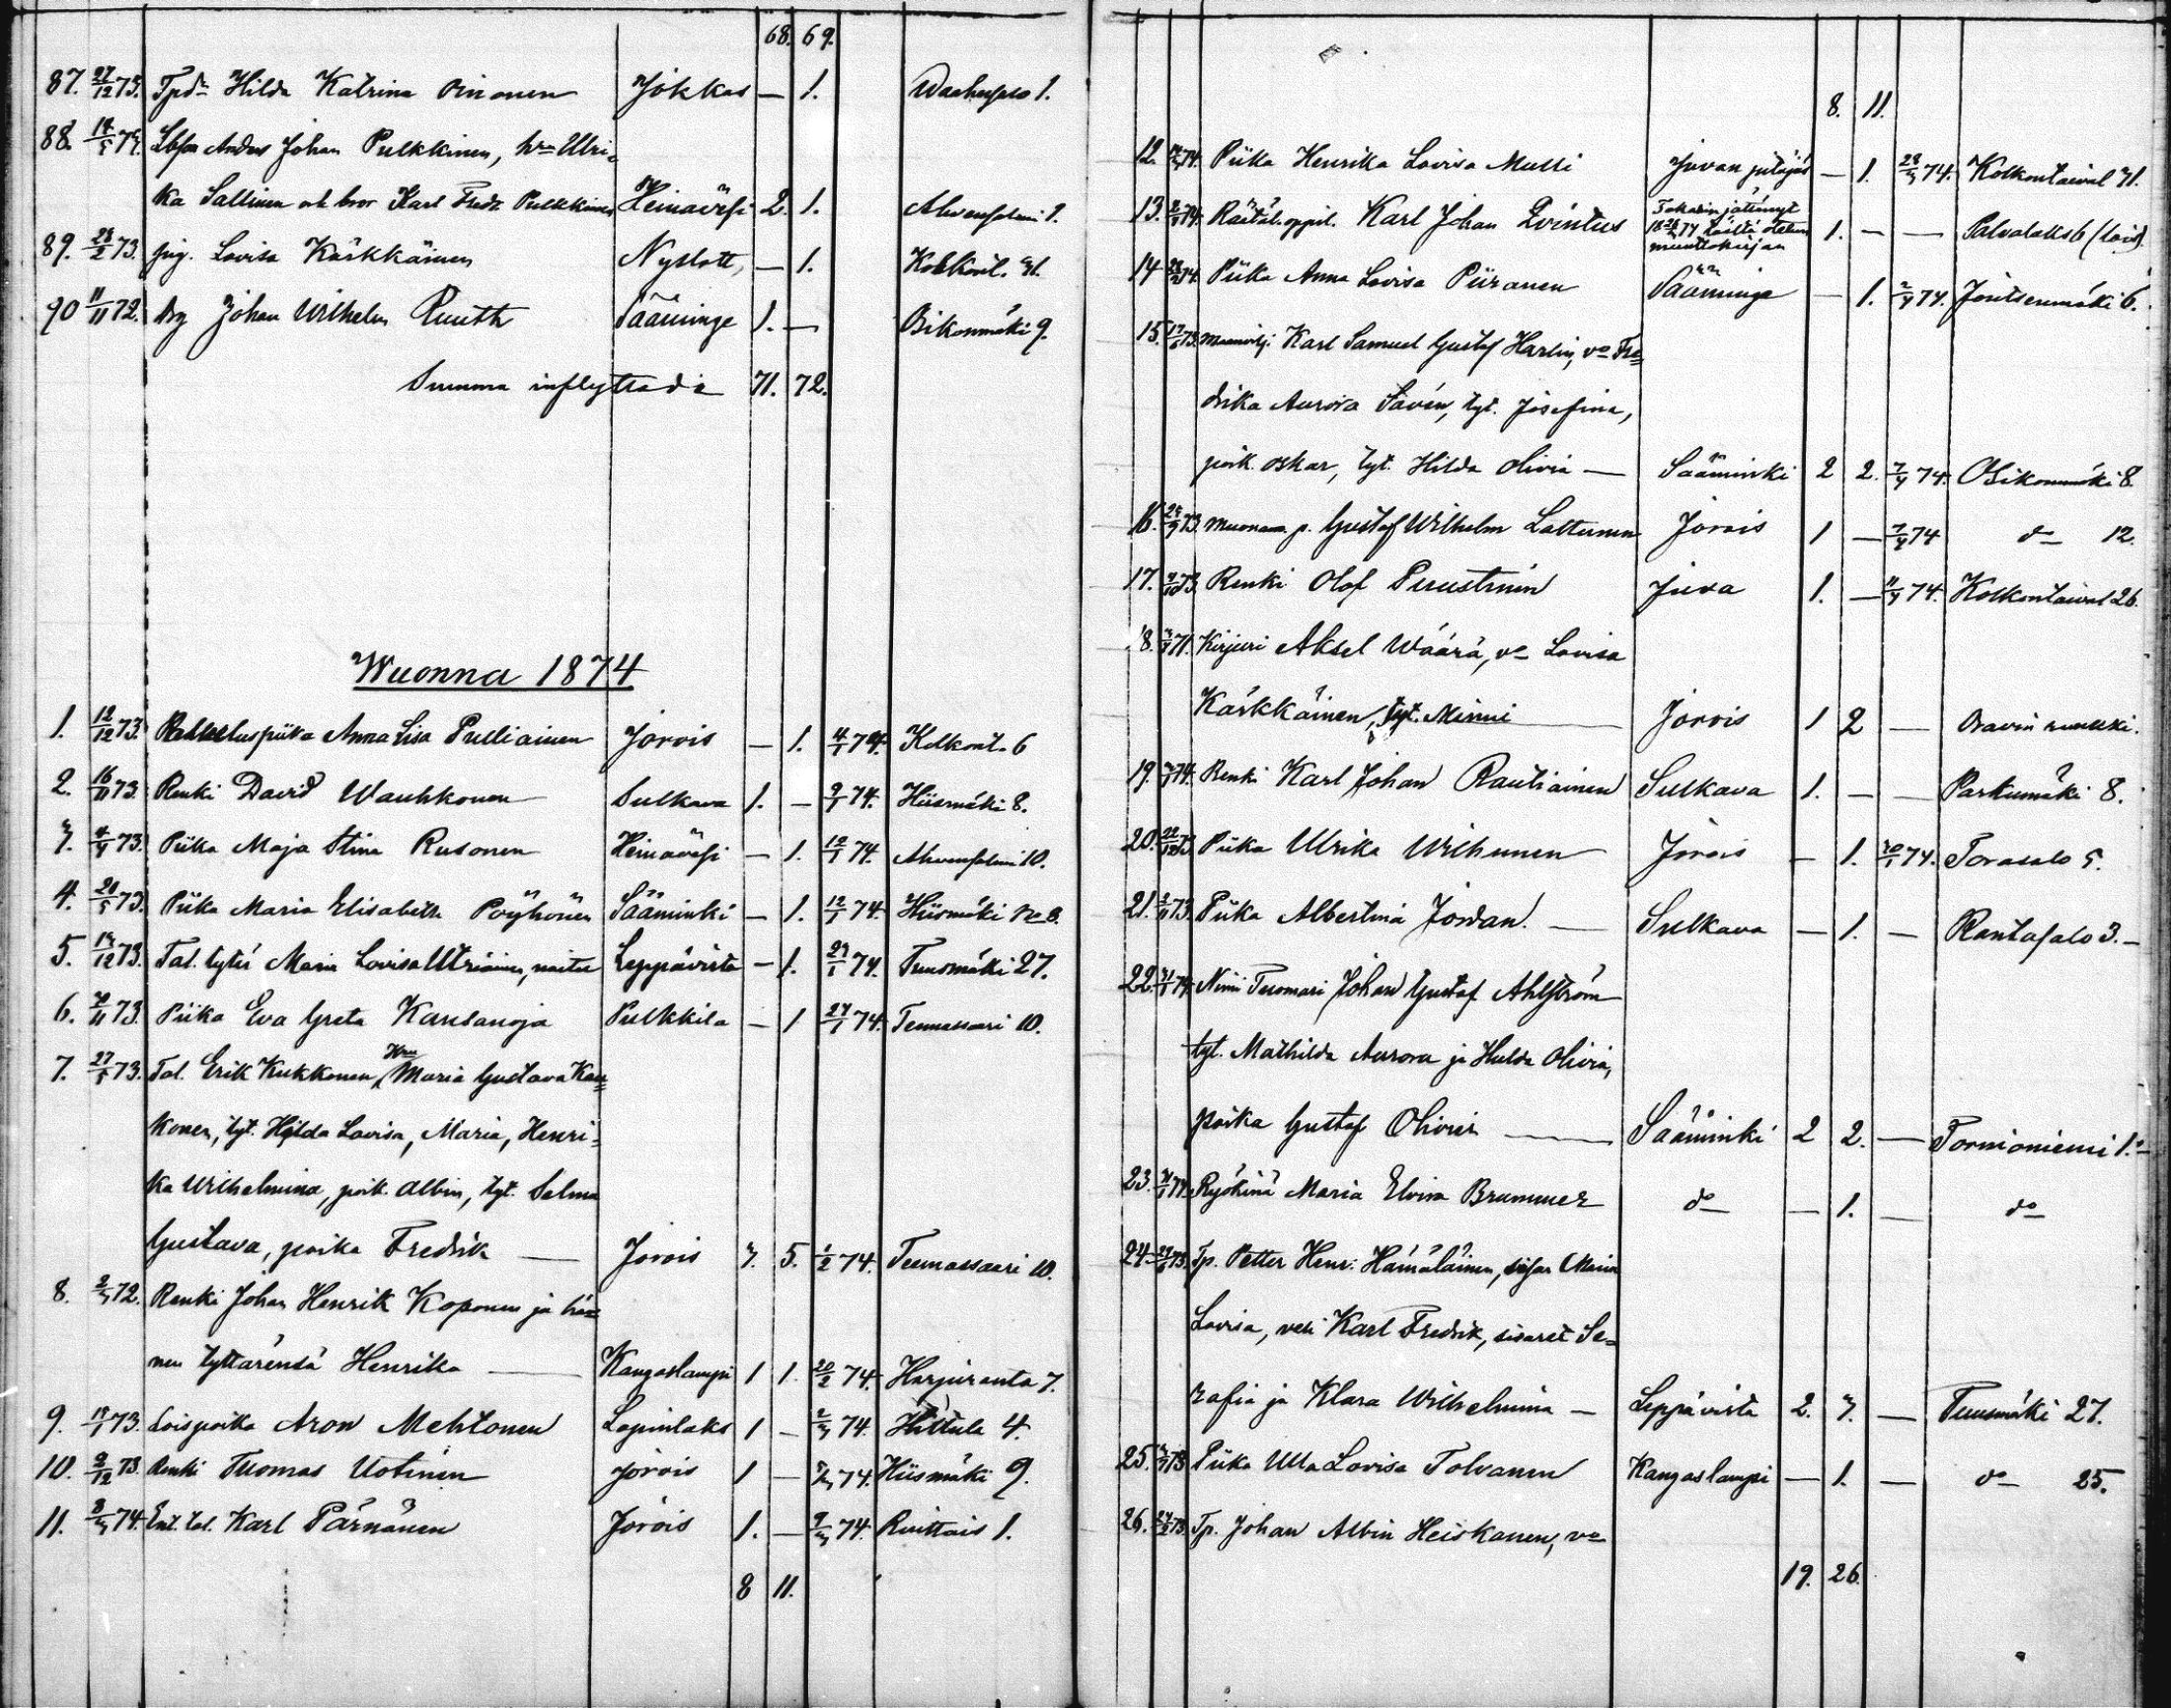 68. 69.
87. 27/12 73. Tpdr Hilda Katrina Oinonen Jokkas — 1. Waahersalo 1.
88. 14/5 74. Anders Johan Pulkkinen, hru Ulri-
ka Sallinen och bror Karl Fredr. Pulkkinen Heinävesi 2. 1. Ahvensalmi 1.
89. 23/2 73. pig. Lovisa Kärkkäinen Nyslott, — 1. Kolkont. 31.
90 11/11 72. drg Johan Wilhelm Ruuth Sääminge 1. — Osikonmäki 9.
Summa inflyttade 71. 72.
Wuonna 1874
1. 12/12 73. Anna Lisa Pulliainen Jorois — 1. 4/1 74. Kolkont. 6
2. 16/11 73. Renki David Wauhkonen Sulkava 1. — 9/1 74. Hiismäki 8.
3. 4/4 73. Piika Maja Stina Rusonen Heinävesi — 1. 12/1 74. Ahvensalmi 10.
4. 20/5 73. Piika Maria Elisabeth Pöyhönen Sääminki — 1. 12/1 74. Hiismäki No 8.
5. 13/12 73. Tal. tytär Maria Lovisa Utriainen, naitu Leppävirta — 1. 23/1 74. Tuusmäki 27.
6. 30/11 73. Piika Eva Greta Kansanoja Pulkkila — 1 24/1 74. Teemassaari 10.
7. 27/5 73. Tal. Erik Kukkonen, Hru Maria Gustava Kau-
konen, tyt. Hilda Lovisa, Maria, Henri-
ka Wilhelmina, poik. Albin, tyt. Selma
Gustava, poika Fredrik — Jorois 3. 5. 1/2 74. Teemassaari 10.
8. 2/3 72. Renki Johan Henrik Koponen ja hä-
nen tyttärensä Henrika — Kangaslampi 1 1. 20/2 74. Harjuranta 7.
9. 13/1 73. Loispoika Aron Mehtonen Lapinlaks 1 — 2/3 74. Hittula 4.
10. 2/12 73. Renki Tuomas Uotinen Jorois 1 — 5/3 74. Hiismäki 9.
11. 8/3 74. Ent. tal. Karl Pärnänen Jorois 1. — 9/3 74. Ruittais 1.
8 11.
8. 11.
12. Piika Henrika Lovisa Mulli Juvan pitäjäs — 1. 23/3 74. Kolkontaival 31.
13. Räätäl. oppil. Karl Johan Qvintus 1. — — Palvalaks 6 (lois).
14 Piika Anna Lovisa Piiranen Sääminge — 1. 2/4 74. Joutsenmäki 6.
15. Karl Samuel Gustaf Harlin, vo Fre-
drika Aurora Savén, tyt. Josefina,
poik. Oskar, tyt. Hilda Olivia — Sääminki 2 2. 7/4 74. Osikonmäki 8.
16. Gustaf Wilhelm Lattunen Jorois 1 — 7/4 74 do 12.
17. Renki Olof Juva 1. — 11/4 74. Kolkontaival 26.
18. Kirjuri Aksel Wäärä, vo Lovisa
Kärkkäinen, tyt. Minni — Jorois 1 2 — Oravin ruukki.
19. Renki Karl Johan Rautiainen Sulkava 1. — — Parkumäki 8.
20. Piika Ulrika Wilhunen Jorois — 1. 30/1 74. Torasalo 5.
21. 73. Piika Albertina Jordan. — Sulkava — 1. — Rantasalo 3. —
22. Johan Gustaf Ahlström
tyt. Mathilda Aurora ja Hulda Olivia,
poika Gustaf Olivier — Sääminki 2 2. — Tornioniemi 1.
23. Ryökinä Maria Elvira Brummer do — 1. — do
24 73. Tp. Petter Henr. Hämäläinen, sisar Maria
Lovisa, veli Karl Fredrik, sisaret Se-
rafia ja Klara Wilhelmina — Leppävirta 2. 3. — Tuusmäki 27.
25. 73 Piika Ulla Lovisa Tolvanen Kangaslampi — 1. — do 25.
26. 73. Tp. Johan Albin Heiskanen, vo
19. 26.